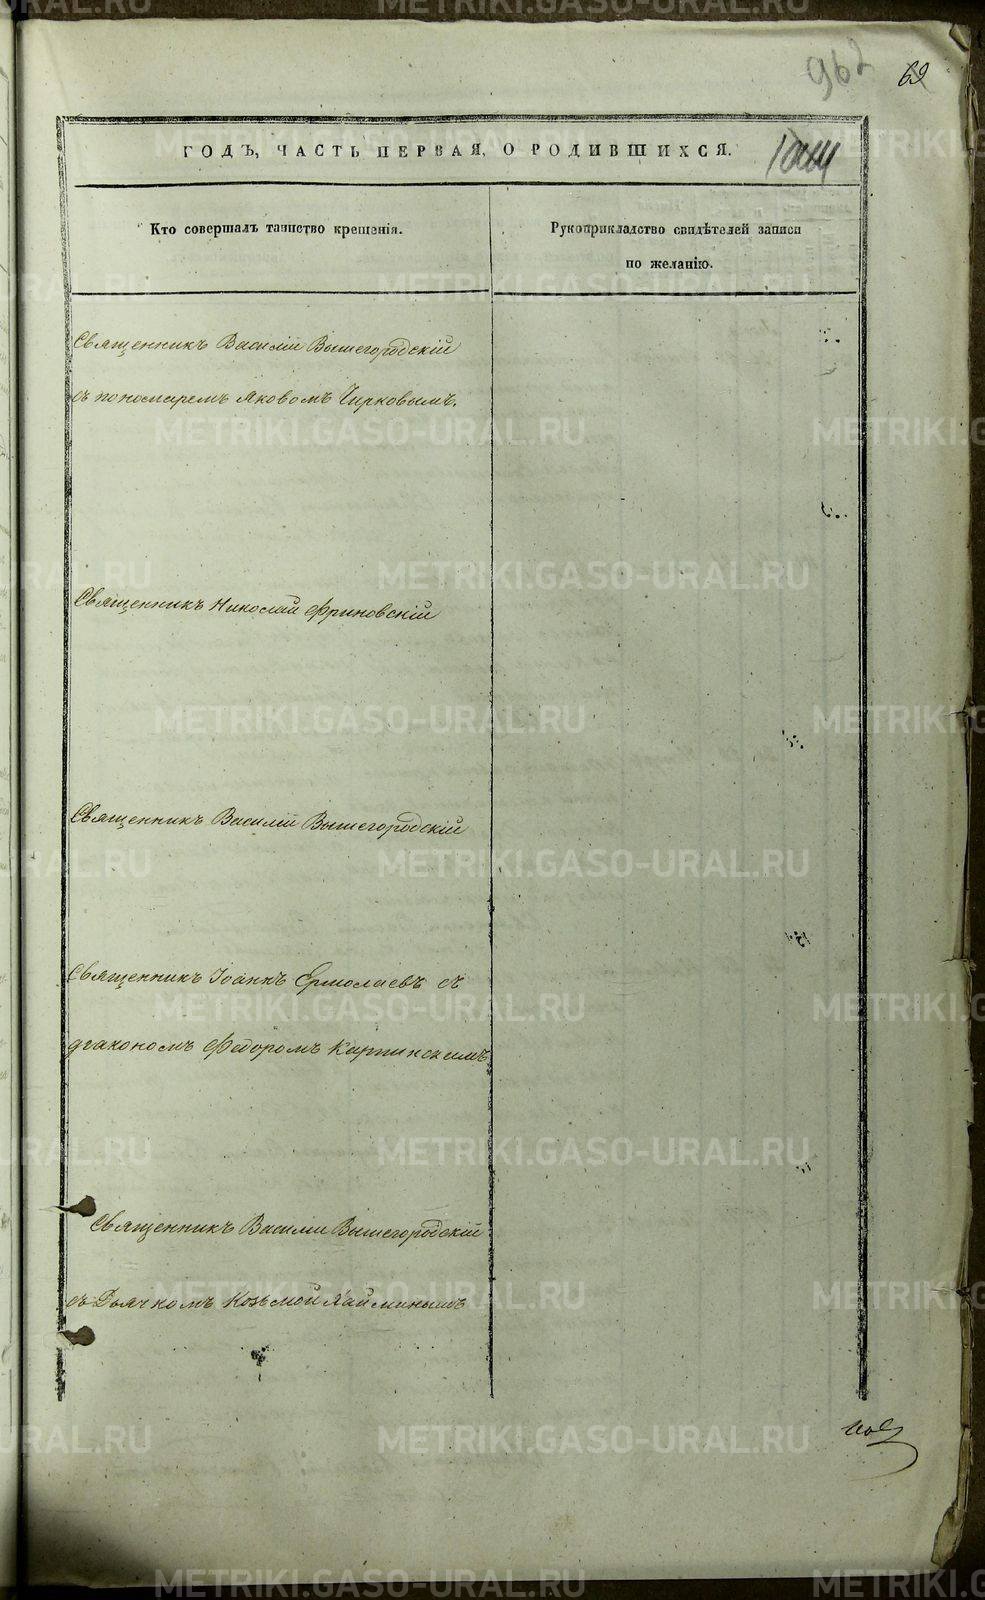 962 69
ГОДЪ, ЧАСТЬ ПЕРВАЯ, О РОДИВШИХСЯ.
Кто совершалъ таинство крещенія.
Рукоприкладство свидѣтелей записи
по желанію.
Священникъ Василій Вышегородскій
съ пономаремъ Яковомъ Чирковымъ.
Священникъ Николай Фриновскій
Священникъ Василій Вышегородскій
Священникъ Іоаннъ Ермолаевъ съ
діакономъ Федоромъ Картинскимъ
Священникъ Василій Вышегородскій
съ Дьячкомъ Козьмой
METRIKI.GASO-URAL.RU